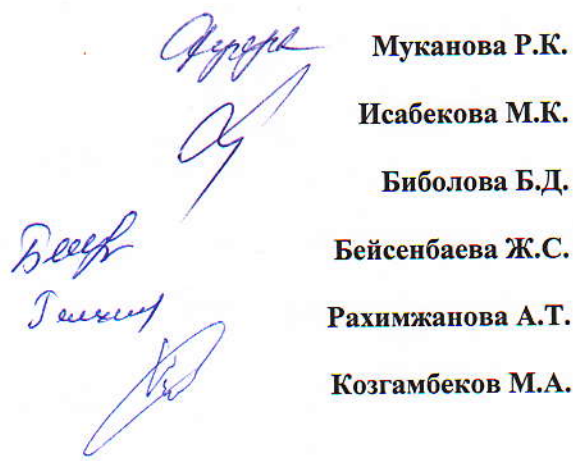 Муканова Р.К.
Исабекова М.К.
Биболова Б.Д.
Бейсенбаева Ж.С.
Рахимжанова А.Т.
Козгамбеков М.А.